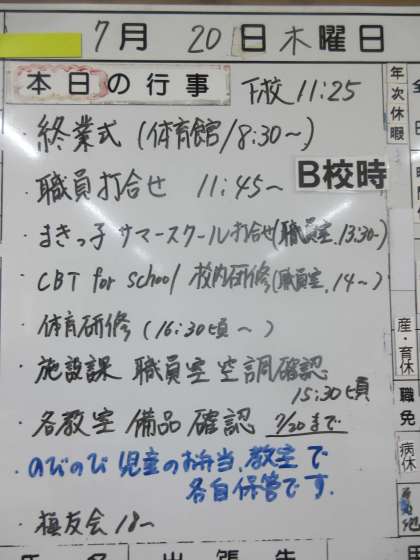 7月 20日 木曜日
本日の行事 下校 11:25
・終業式 (体育館/8:30〜)
・職員打合せ 11:45〜 B校時
・まきっ子サマースクール打合せ(職員室,13:30〜)
・CBT for school 校内研修(職員室,14〜)
・体育研修 (16:30頃〜)
・施設課 職員室空調確認
15:30頃
・各教室備品確認 7/20まで
・のびのび児童のお弁当,教室で
各自保管です.
・友会 18〜
年次休暇
産・育休
職免
病休
氏名 出張先